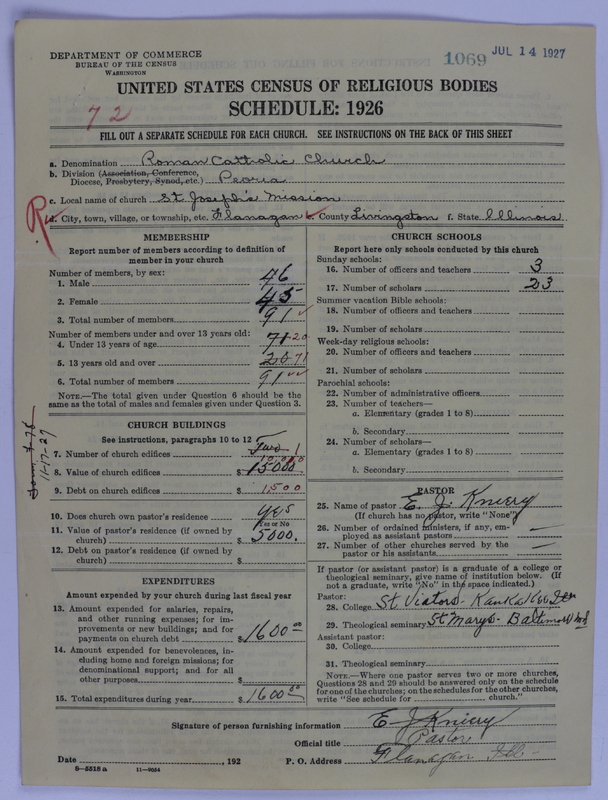 DEPARTMENT OF COMMERCE
BUREAU OF THE CENSUS
WASHINGTON
1069 JUL 14 1927
UNITED STATES CENSUS OF RELIGIOUS BODIES
72
SCHEDULE: 1926
FILL OUT A SEPARATE SCHEDULE FOR EACH CHURCH. SEE INSTRUCTIONS ON THE BACK OF THIS SHEET
a. Denomination Roman Cattrolic Church
b. Division (Association, Conference,
Diocese, Presbytery, Synod, etc.) Peoria
c. Local name of church St Joseph's Mission
d. City, town, village, or township, etc. Flanagan e. County Livingston f. State Illinois.
MEMBERSHIP
Report number of members according to definition of
member in your church
Number of members, by sex:
1. Male 46
2. Female 45
3. Total number of members 91
Number of members under and over 13 years old:
4. Under 13 years of age 71 20
5. 13 years old and over 20 71
6. Total number of members 91
NOTE.—The total given under Question 6 should be
the same as the total of males and females given under Question 3.
CHURCH BUILDINGS
See instructions, paragraphs 10 to 12
7. Number of church edifices Two 1
8. Value of church edifices $ 15000
9. Debt on church edifices $ 1500
10. Does church own pastor's residence yes
Yes or No
11. Value of pastor's residence (if owned by
church) $ 5000.
12. Debt on pastor's residence (if owned by
church) $
11-17-27
EXPENDITURES
Amount expended by your church during last fiscal year
13. Amount expended for salaries, repairs,
and other running expenses; for im-
provements or new buildings; and for
payments on church debt $ 1600 00
14. Amount expended for benevolences, in-
cluding home and foreign missions; for
denominational support; and for all
other purposes $
15. Total expenditures during year $ 1600 00
CHURCH SCHOOLS
Report here only schools conducted by this church
Sunday schools:
16. Number of officers and teachers 3
17. Number of scholars 23
Summer vacation Bible schools:
18. Number of officers and teachers
19. Number of scholars
Week-day religious schools:
20. Number of officers and teachers
21. Number of scholars
Parochial schools:
22. Number of administrative officers
23. Number of teachers—
a. Elementary (grades 1 to 8)
b. Secondary
24. Number of scholars—
a. Elementary (grades 1 to 8)
b. Secondary
PASTOR
25. Name of pastor E. J. Kniery
(If church has no pastor, write "None")
26. Number of ordained ministers, if any, em-
ployed as assistant pastors —
27. Number of other churches served by the
pastor or his assistants —
If pastor (or assistant pastor) is a graduate of a college or
theological seminary, give name of institution below. (If
not a graduate, write "No" in the space indicated.)
Pastor:
28. College St Viators - Kankakee Ill
29. Theological seminary St Marys - Baltimore Md
Assistant pastor:
30. College
31. Theological seminary
NOTE.—Where one pastor serves two or more churches,
Questions 28 and 29 should be answered only on the schedule
for one of the churches; on the schedules for the other churches,
write "See schedule for church."
Signature of person furnishing information E. J. Kniery
Official title Pastor
Date , 192 P. O. Address Flanagan Ill -
8—5518a 11—9034